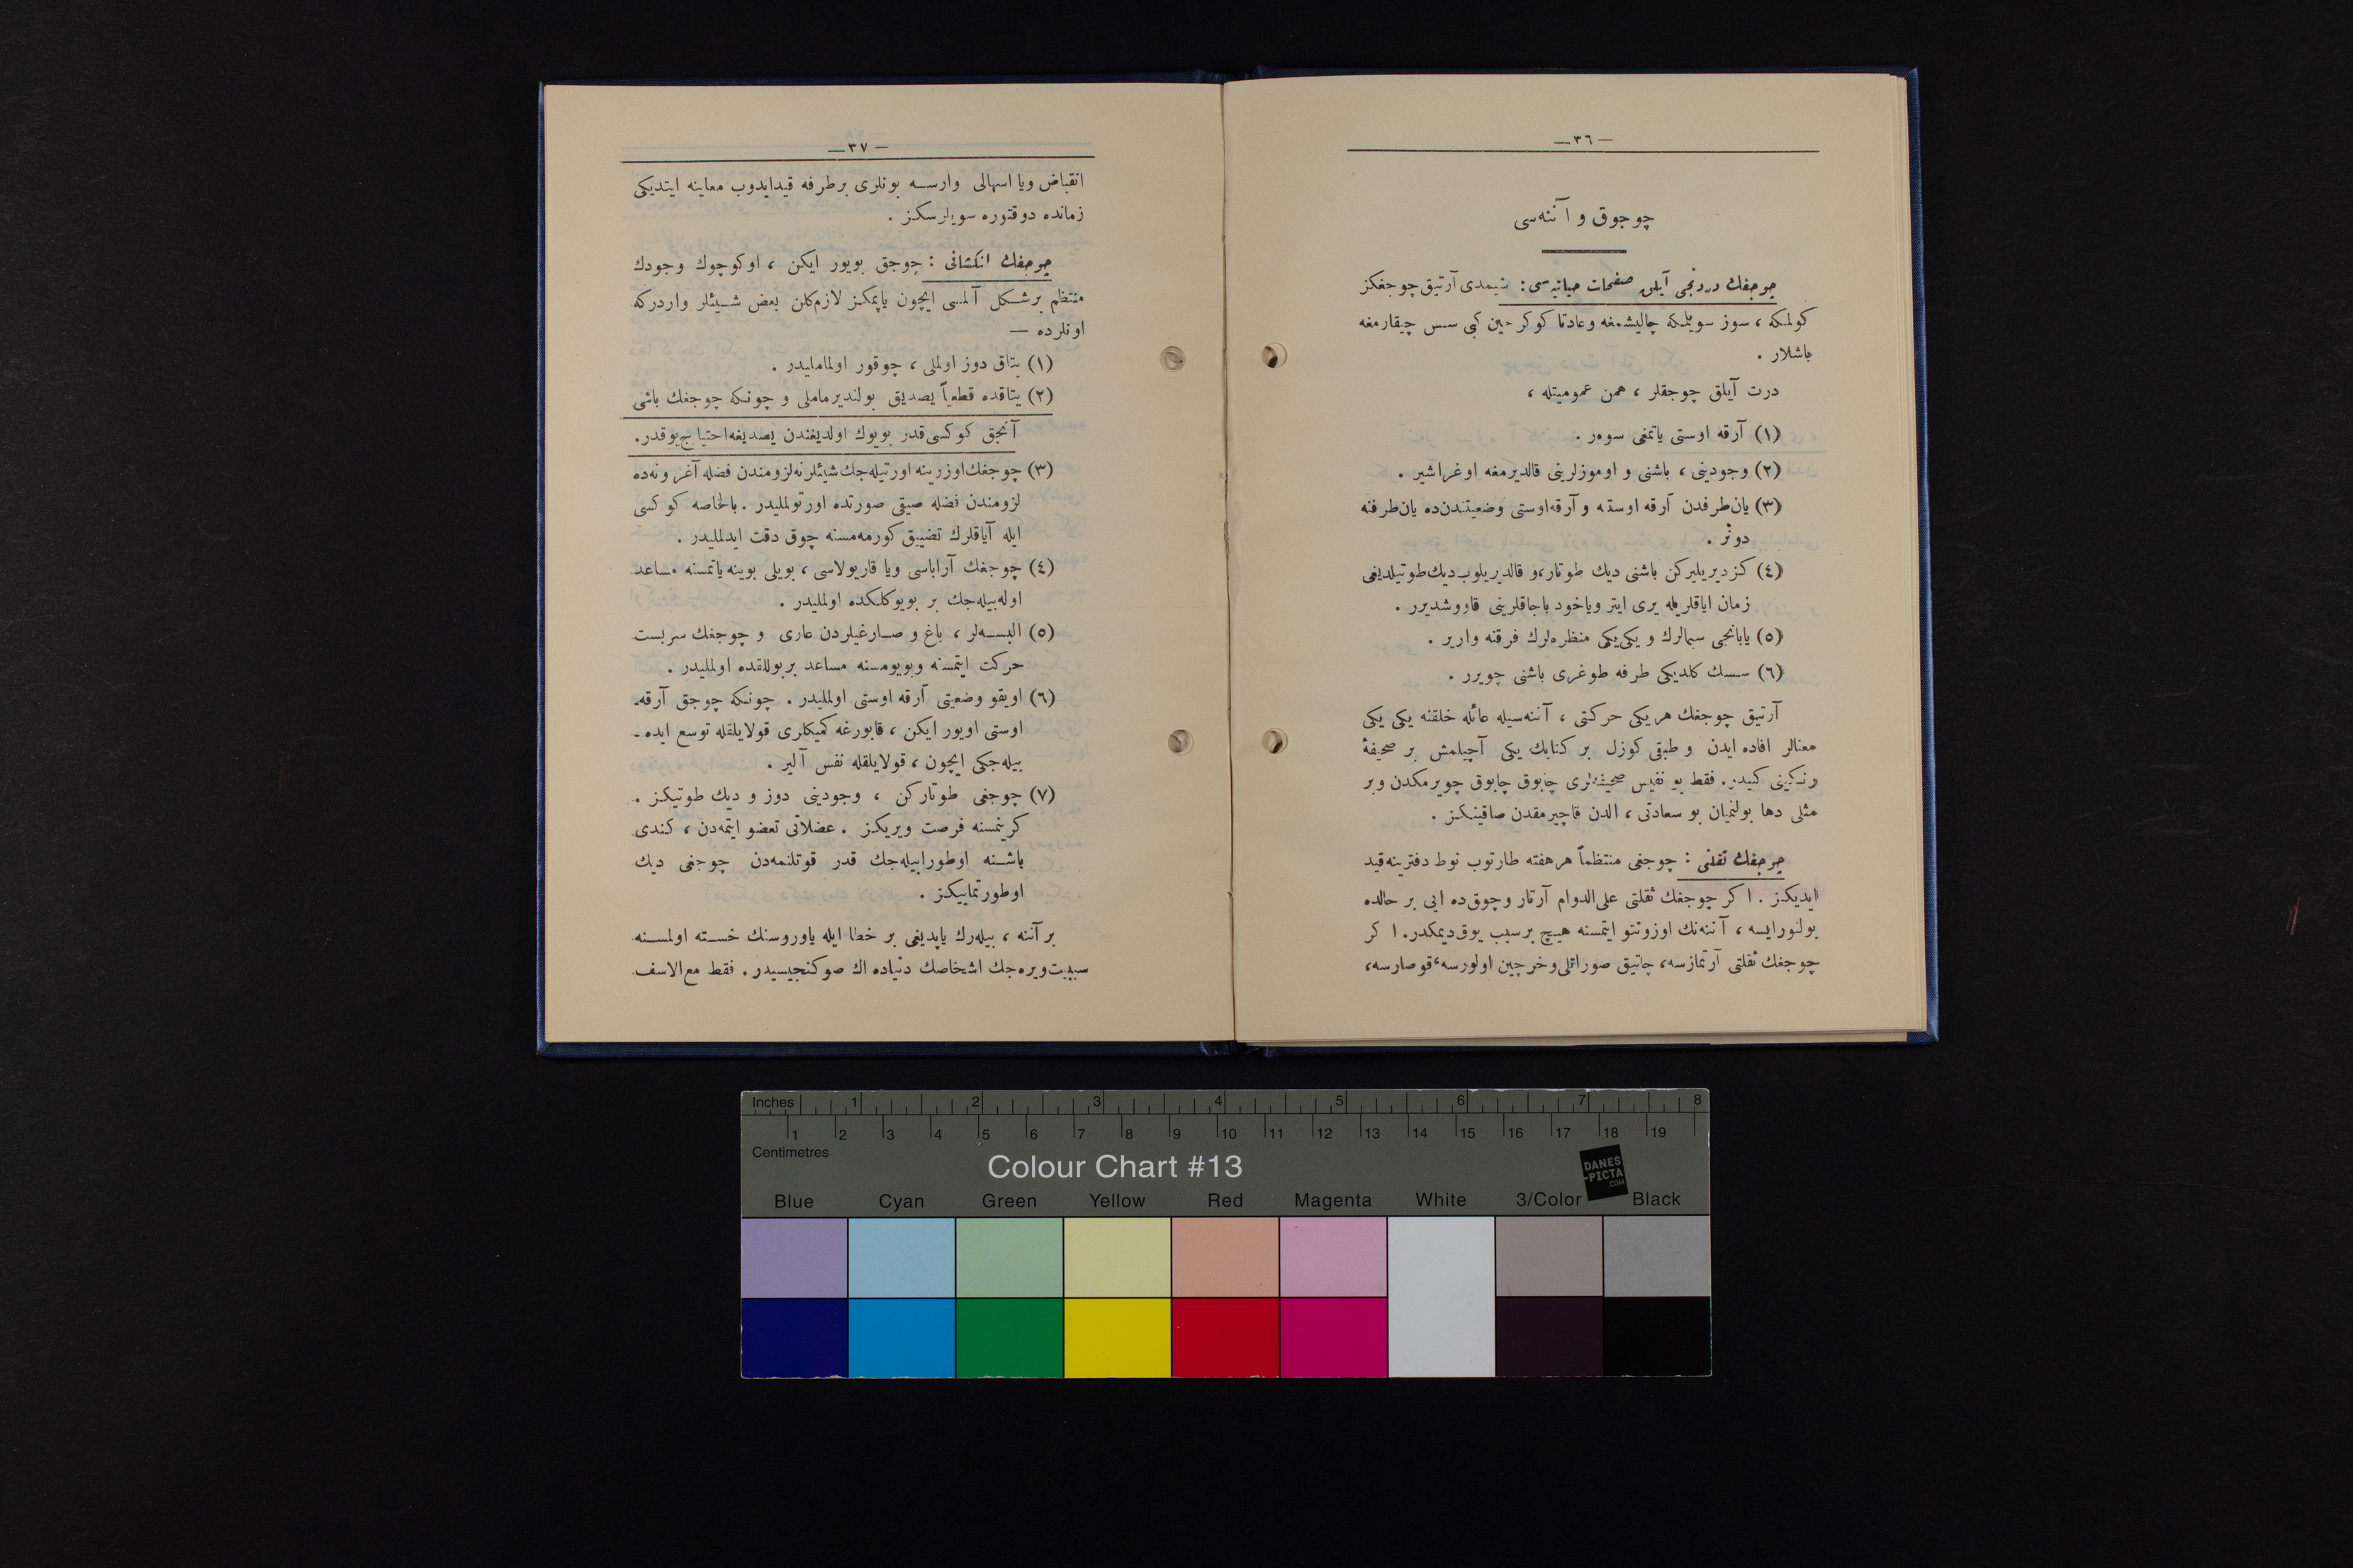 — ٣٦ —
چوجوق و آننه‌سی
چوجغك دردنجی آیلق صفحات حیاتیه‌سی : شیمدی آرتیق چوجغكز
كولمكه ، سوز سویلمكه چالیشمغه وعادتا كوكرجین كبی سس چیقارمغه
باشلار .
درت آیلق چوجقلر ، همن عمومیتله ،
(١) آرقه اوستی یاتمغی سوەر .
(٢) وجودینی ، باشنی و اوموزلرینی قالدیرمغه اوغراشیر .
(٣) یان‌طرفدن آرقه اوسته و آرقه‌اوستی وضعیتندن‌ده یان‌طرفنه
دونر .
(٤) كزدیریلیركن باشنی دیك طوتار،و قالدیریلوب‌دیك‌طوتیلدیغی
زمان ایاقلریله یری ایتر ویاخود باجاقلرینی قاووشدیرر .
(٥) یابانجی سیمالرك و یكی‌یكی منظره‌لرك فرقنه واریر .
(٦) سسك كلدیكی طرفه طوغری باشنی چویرر .
آرتیق چوجغك هریكی حركتی ، آننه‌سیله عائله خلقنه یكی یكی
معنالر افاده ایدن و طبقی كوزل بر كتابك یكی آچیلمش بر صحیفۀ
رنكینی كبیدر. فقط بو نفیس صحیفه‌لری چابوق چابوق چویرمكدن وبر
مثلی دها بولنمیان بو سعادتی ، الدن قاچیرمقدن صاقینكز .
چوجغك ثقلتی : چوجغی منتظماً هرهفته طارتوب نوط دفترینه‌قید
ایدیكز . اكر چوجغك ثقلتی علی‌الدوام آرتار وچوق‌ده ایی بر حالده
بولنورایسه ، آننه‌نك اوزونتو ایتمسنه هیچ برسبب یوق‌دیمكدر. اكر
چوجغك ثقلتی آرتمازسه، چاتیق صوراتلی‌وخرچین اولورسه،قوصارسه،
— ٣٧ —
انقباض ویا اسهالی وارسه بونلری برطرفه قیدایدوب معاینه ایتدیكی
زمانده دوقتوره سویلرسكز .
چوجغك انكشافی : چوجق بویور ایكن ، اوكوچوك وجودك
منتظم برشكل آلمسی ایچون یاپمكز لازم‌كلن بعض شیئلر واردركه
اونلرده —
(١) یتاق دوز اولملی ، چوقور اولمامالیدر .
(٢) یتاقده قطعیاً یصدیق بولندیرماملی و چونكه چوجغك باشی
آنجق كوكسی‌قدر بویوك اولدیغندن یصدیغه‌احتیاج‌یوقدر.
(٣) چوجغك‌اوزرینه اورتیله‌جك‌شیئلرنه‌لزومندن فضله آغر ونه‌ده
لزومندن فضله صیقی صورتده اورتولملیدر . بالخاصه كوكسی
ایله آیاقلرك تضییق كورمه‌مسنه چوق دقت ایدلملیدر .
(٤) چوجغك آراباسی ویا قاریولاسی ، بویلی بوینه یاتمسنه مساعد
اوله‌بیله‌جك بر بویوكلكده اولملیدر .
(٥) البسه‌لر ، باغ و صارغیلردن عاری و چوجغك سربست
حركت ایتمسنه وبویومسنه مساعد بربوللقده اولملیدر .
(٦) اویقو وضعیتی آرقه اوستی اولملیدر . چونكه چوجق آرقه-
اوستی اویور ایكن ، قابورغه كمیكلری قولایلقله توسع ایده-
بیله‌جكی ایچون ، قولایلقله نفس آلیر .
(٧) چوجغی طوتاركن ، وجودینی دوز و دیك طوتیكز .
كرینمسنه فرصت ویریكز . عضلاتی تعضو ایتمه‌دن ، كندی
باشنه اوطورابیله‌جك قدر قوتلنمه‌دن چوجغی دیك
اوطورتماییكز .
بر آننه ، بیله‌رك یاپدیغی بر خطا ایله یاوروسنك خسته اولمسنه
سببیت‌ویره‌جك اشخاصك دنیاده اك صوكنجیسیدر . فقط مع‌الاسف
Inches 1 2 3 4 5 6 7 8
1 2 3 4 5 6 7 8 9 10 11 12 13 14 15 16 17 18 19
Centimetres
Colour Chart #13
DANES
-PICTA
.COM
Blue Cyan Green Yellow Red Magenta White 3/Color Black